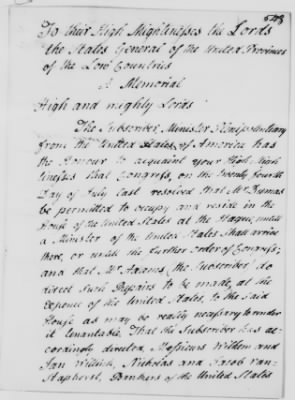 To their High Mightinesses the Lords
the States General of the United Provinces
of the Low Countries
A Memorial
High and mighty Lords
The Subscriber, Minister Plenipotentiary
from the United States of America has
the Honour to acquaint your High Migh
tinesses that Congress, on the Twenty fourth
Day of July last resolved that Mr Dumas
be permitted to occupy and reside in the
House of the United States at the Hague, untill
a Minister of the United States shall arrive
there, or untill the further Order of Congress;
and that Mr Adams, the Subscriber do
direct such Repairs to be made, at the
Expence of the United States, to the said
House as may be really necessary to render
it tenantable. That the Subscriber has ac
cordingly directed Messieurs Wilhem and
Jan Willink, Nicholas and Jacob van
Staphorst, Bankers of the United States